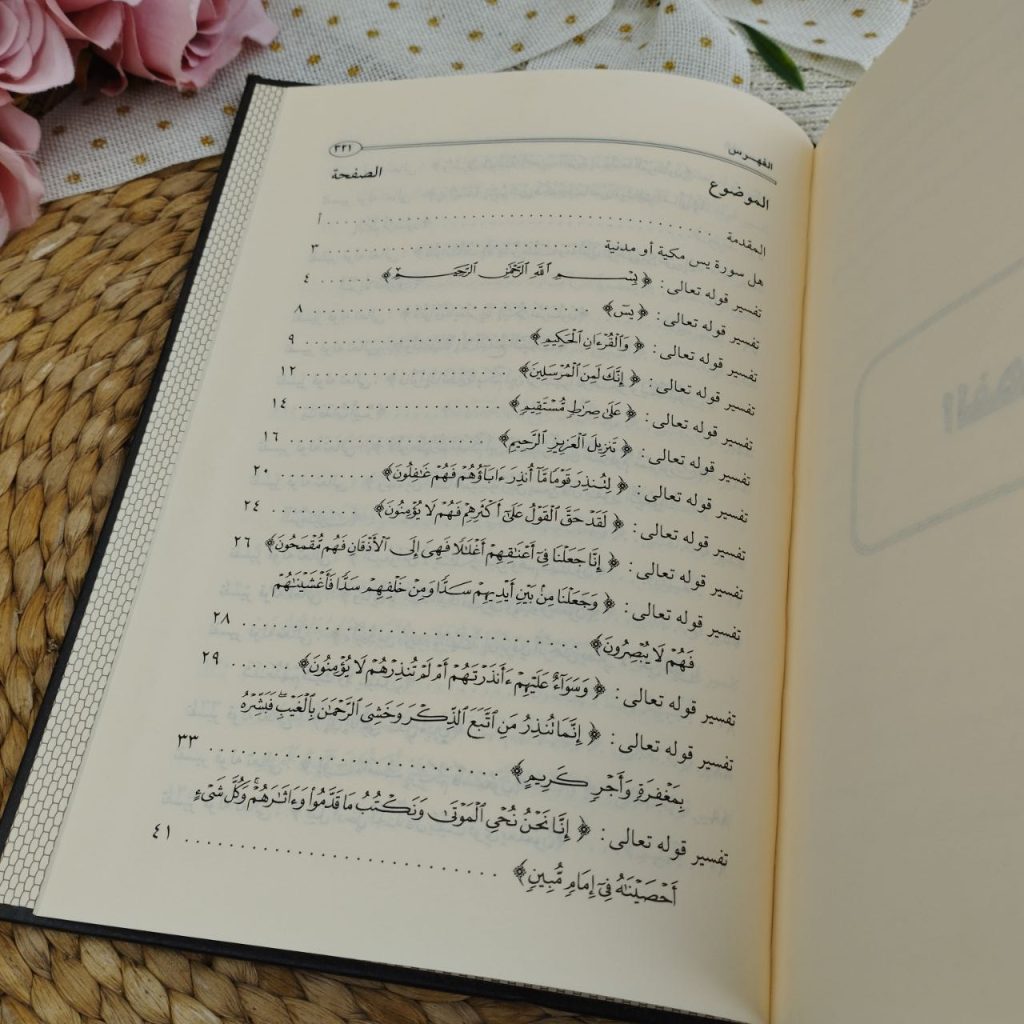 الفهرس ٣٢١
الموضوع الصفحة
المقدمة . . . . . . . . . . . . . . . . . . أ
هل سورة يس مكية أو مدنية . . . . . . . . . . . . ٣
تفسير قوله تعالى : ﴿ بِسْمِ ٱللَّهِ ٱلرَّحْمَٰنِ ٱلرَّحِيمِ ﴾ . . . . . . ٤
تفسير قوله تعالى : ﴿ يسٓ ﴾ . . . . . . . . . . . . ٨
تفسير قوله تعالى : ﴿ وَٱلْقُرْءَانِ ٱلْحَكِيمِ ﴾ . . . . . . . . . . ٩
تفسير قوله تعالى : ﴿ إِنَّكَ لَمِنَ ٱلْمُرْسَلِينَ ﴾ . . . . . . . . . . ١٢
تفسير قوله تعالى : ﴿ عَلَىٰ صِرَٰطٍ مُّسْتَقِيمٍ ﴾ . . . . . . . . . . ١٤
تفسير قوله تعالى : ﴿ تَنزِيلَ ٱلْعَزِيزِ ٱلرَّحِيمِ ﴾ . . . . . . . . . . ١٦
تفسير قوله تعالى : ﴿ لِتُنذِرَ قَوْمًا مَّآ أُنذِرَ ءَابَآؤُهُمْ فَهُمْ غَٰفِلُونَ ﴾ . . . . . . ٢٠
تفسير قوله تعالى : ﴿ لَقَدْ حَقَّ ٱلْقَوْلُ عَلَىٰٓ أَكْثَرِهِمْ فَهُمْ لَا يُؤْمِنُونَ ﴾ . . . . . . ٢٤
تفسير قوله تعالى : ﴿ إِنَّا جَعَلْنَا فِىٓ أَعْنَٰقِهِمْ أَغْلَٰلًا فَهِىَ إِلَى ٱلْأَذْقَانِ فَهُم مُّقْمَحُونَ ﴾ ٢٦
تفسير قوله تعالى : ﴿ وَجَعَلْنَا مِنۢ بَيْنِ أَيْدِيهِمْ سَدًّا وَمِنْ خَلْفِهِمْ سَدًّا فَأَغْشَيْنَٰهُمْ
فَهُمْ لَا يُبْصِرُونَ ﴾ . . . . . . . . . . . . . . ٢٨
تفسير قوله تعالى : ﴿ وَسَوَآءٌ عَلَيْهِمْ ءَأَنذَرْتَهُمْ أَمْ لَمْ تُنذِرْهُمْ لَا يُؤْمِنُونَ ﴾ . . . . . . ٢٩
تفسير قوله تعالى : ﴿ إِنَّمَا تُنذِرُ مَنِ ٱتَّبَعَ ٱلذِّكْرَ وَخَشِىَ ٱلرَّحْمَٰنَ بِٱلْغَيْبِ ۖ فَبَشِّرْهُ
بِمَغْفِرَةٍ وَأَجْرٍ كَرِيمٍ ﴾ . . . . . . . . . . . . . . ٣٣
تفسير قوله تعالى : ﴿ إِنَّا نَحْنُ نُحْىِ ٱلْمَوْتَىٰ وَنَكْتُبُ مَا قَدَّمُوا۟ وَءَاثَٰرَهُمْ ۚ وَكُلَّ شَىْءٍ
أَحْصَيْنَٰهُ فِىٓ إِمَامٍ مُّبِينٍ ﴾ . . . . . . . . . . . . . . ٤١